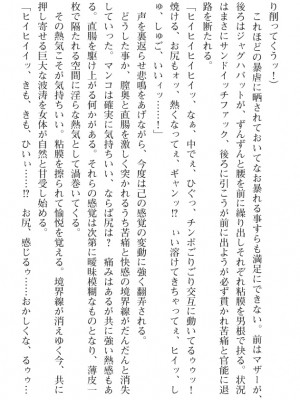 り削ってくうッ！）
　これほどの暴虐に晒されておいてなお暴れる事すらも満足にできない。前はマザーが、
後ろはジャグハバットが、ずんずんと腰を前に繰り出しそれぞれ粘膜を男根で抉る。状況
はまさにサンドイッチファック、後ろに引こうが前に出ようが必ず貫かれ苦痛と官能に退
路を断たれる。
「ヒイヒイヒイッ、なぁ、中でぇ、ひぐっ、チンポごりごり交互に動いてるゥゥッ！
焼ける、お尻もォッ、熱くなってェ、ギャンッ⁉　いい溶けてきちゃってぇ、ヒイッ、し
ゃ、しゅご、いいィッ………！
　声を裏返らせ悲鳴をあげながら、今度は己の感覚の変動に強く翻弄される。
　どうした事か、膣奥と直腸を激しく突かれるうち苦痛と快感の境界線がだんだんと消失
していった。マンコは確実に気持ちいい、ならば尻は？　痛みはあるが共に強い熱感もあ
る。直腸を駆け上がる何かがある。それらの感覚は次第に曖昧模糊なものとなり、薄皮一
枚で隔たれる空間に淫らな熱気として渦巻いてくる。
　その熱気こそが気持ちいい。粘膜を擦られて愉悦を覚える。境界線が消えゆく今、共に
押し寄せる巨大な波濤を女体が自然と甘受し始める。
「ヒイヒイイッ、きも、きも、ひい……⁉　お尻、感じるゥ……おかしくな、るゥゥ…